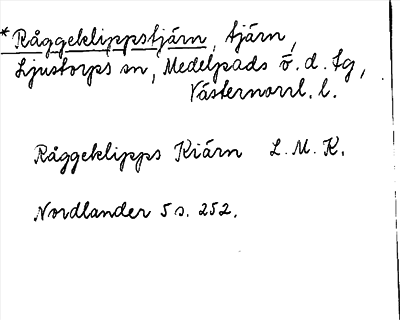 *Råggeklippstjärn, tjärn,
Ljustorps sn, Medelpads ö. d. tg,
Västernorrl. l.
Råggeklipps Kiärn L. M. K.
Nordlander 5 s. 252.